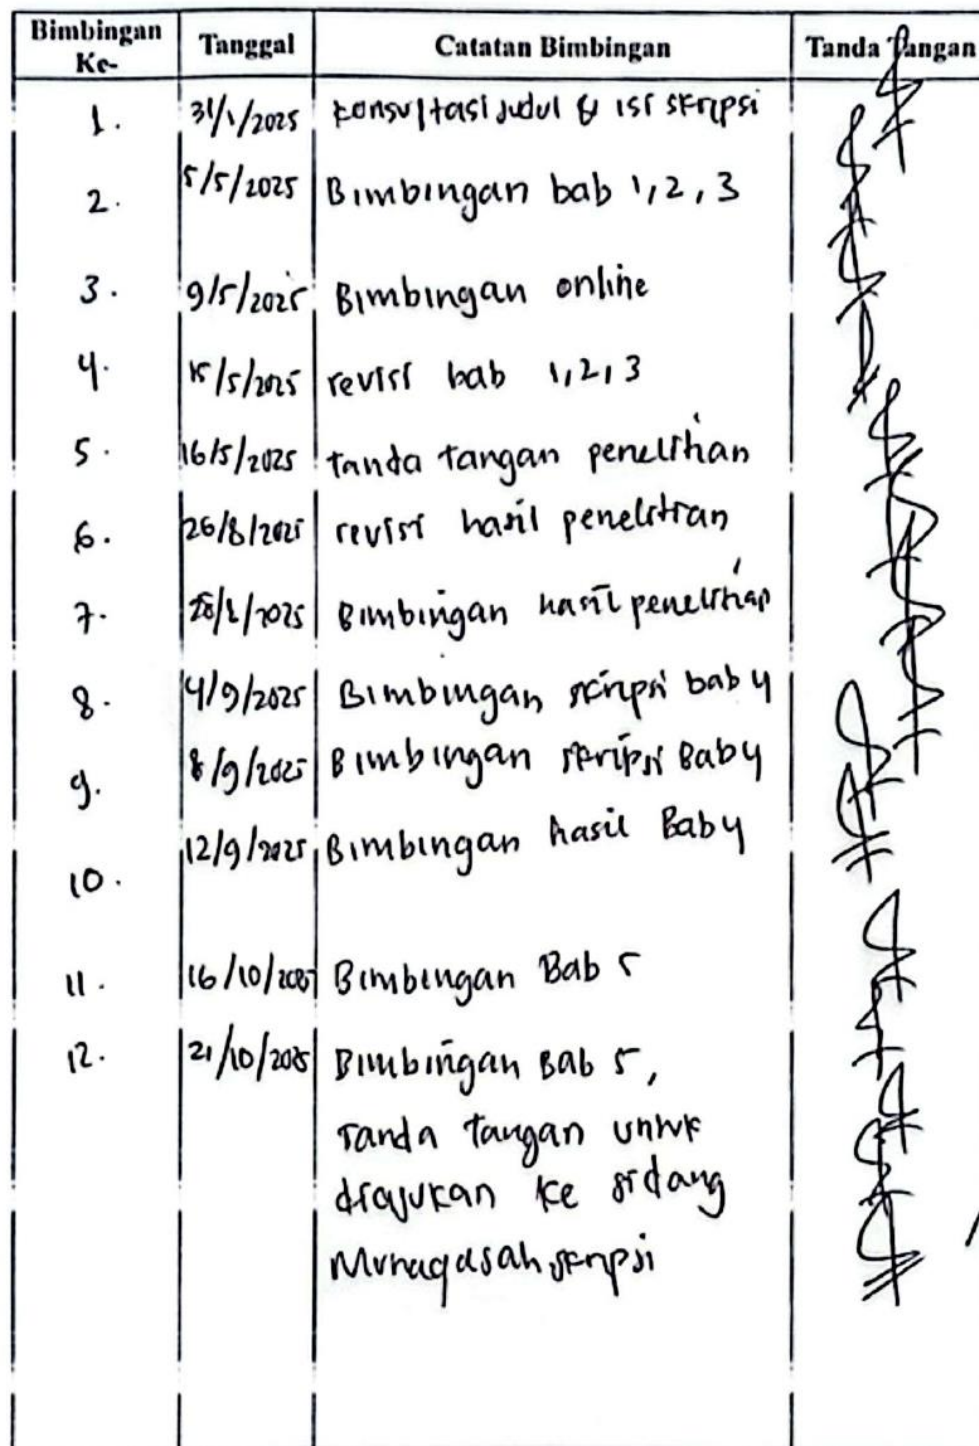 Bimbingan Ke- Tanggal Catatan Bimbingan Tanda Tangan
1. 31/1/2025 Konsultasi judul & isi skripsi
2. 5/5/2025 Bimbingan bab 1, 2, 3
3. 9/5/2025 Bimbingan online
4. 15/5/2025 revisi bab 1, 2, 3
5. 16/5/2025 tanda tangan penelitian
6. 26/8/2025 revisi hasil penelitian
7. Bimbingan hasil penelitian
8. 4/9/2025 Bimbingan skripsi bab 4
9. 8/9/2025 Bimbingan skripsi Bab 4
10. 12/9/2025 Bimbingan hasil Bab 4
11. 16/10/2025 Bimbingan Bab 5
12. 21/10/2025 Bimbingan Bab 5,
Tanda tangan untuk
diajukan ke sidang
Munaqasah skripsi